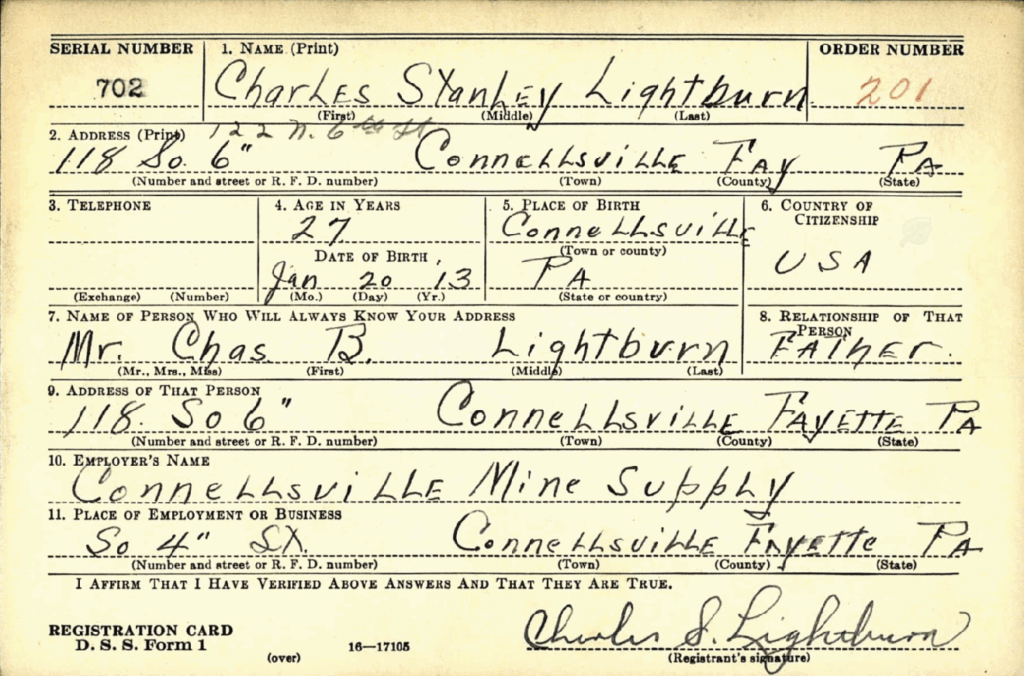 SERIAL NUMBER 1. NAME (Print) ORDER NUMBER
702 Charles Stanley Lightburn 201
(First) (Middle) (Last)
122 N. 6th St
2. ADDRESS (Print)
118 So. 6" Connellsville Fay PA
(Number and street or R. F. D. number) (Town) (County) (State)
3. TELEPHONE 4. AGE IN YEARS 5. PLACE OF BIRTH 6. COUNTRY OF CITIZENSHIP
27 Connellsville
DATE OF BIRTH (Town or county) USA
Jan 20 13 PA
(Exchange) (Number) (Mo.) (Day) (Yr.) (State or country)
7. NAME OF PERSON WHO WILL ALWAYS KNOW YOUR ADDRESS 8. RELATIONSHIP OF THAT PERSON
Mr. Chas B. Lightburn Father.
(Mr., Mrs., Miss) (First) (Middle) (Last)
9. ADDRESS OF THAT PERSON
118. So 6" Connellsville Fayette PA
(Number and street or R. F. D. number) (Town) (County) (State)
10. EMPLOYER'S NAME
Connellsville Mine Supply
11. PLACE OF EMPLOYMENT OR BUSINESS
So 4" St. Connellsville Fayette PA
(Number and street or R. F. D. number) (Town) (County) (State)
I AFFIRM THAT I HAVE VERIFIED ABOVE ANSWERS AND THAT THEY ARE TRUE.
REGISTRATION CARD Charles S. Lightburn
D. S. S. Form 1 (over) 16—17105 (Registrant's signature)